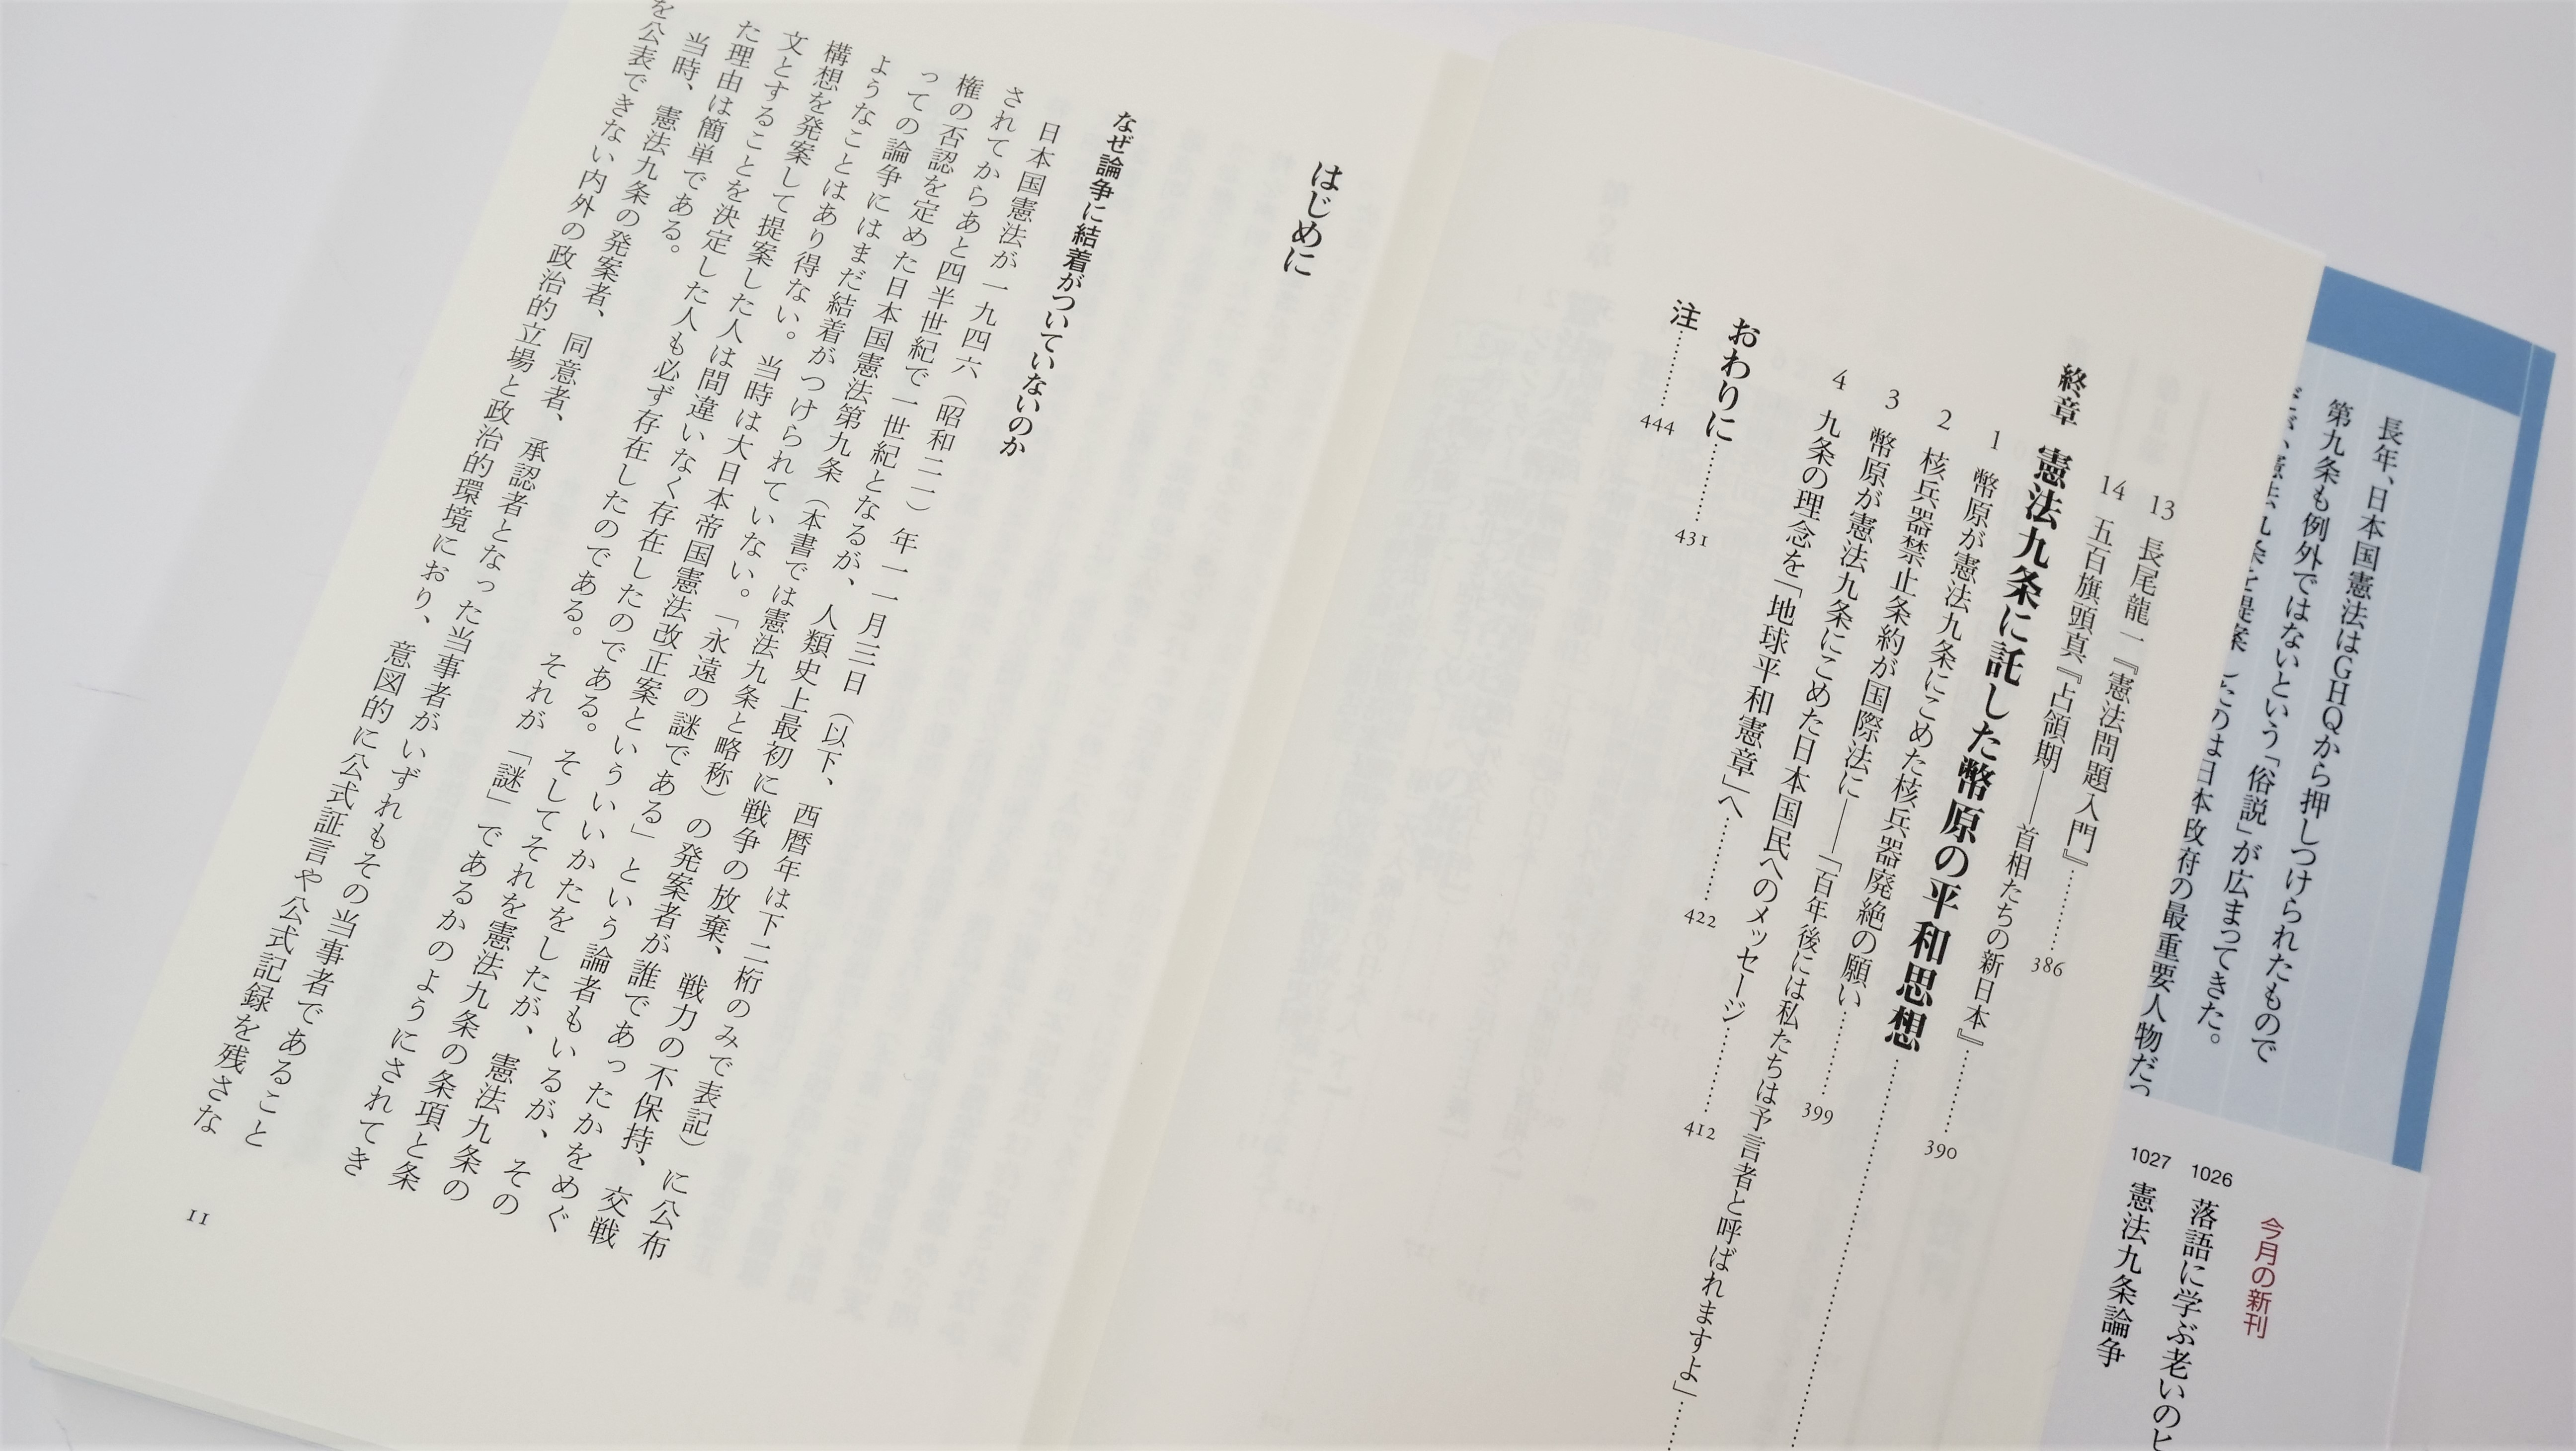 長年、日本国憲法はGHQから押しつけられたもので
第九条も例外ではないという「俗説」が広まってきた。
だが、憲法九条を提案したのは日本政府の最重要人物だっ
今月の新刊
1026 落語に学ぶ老いのヒ
1027 憲法九条論争
13 長尾龍一『憲法問題入門』………386
14 五百旗頭真『占領期――首相たちの新日本』………390
終章 憲法九条に託した幣原の平和思想………
1 幣原が憲法九条にこめた核兵器廃絶の願い………399
2 核兵器禁止条約が国際法に――「百年後には私たちは予言者と呼ばれますよ」………
3 幣原が憲法九条にこめた日本国民へのメッセージ………412
4 九条の理念を「地球平和憲章」へ………422
おわりに………431
注………444
はじめに
なぜ論争に結着がついていないのか
日本国憲法が一九四六（昭和二一）年一一月三日（以下、西暦年は下二桁のみで表記）に公布
されてからあと四半世紀で一世紀となるが、人類史上最初に戦争の放棄、戦力の不保持、交戦
権の否認を定めた日本国憲法第九条（本書では憲法九条と略称）の発案者が誰であったかをめぐ
っての論争にはまだ結着がつけられていない。「永遠の謎である」という論者もいるが、その
ようなことはあり得ない。当時は大日本帝国憲法改正案といういいかたをしたが、憲法九条の
構想を発案して提案した人は間違いなく存在したのである。そしてそれを憲法九条の条項と条
文とすることを決定した人も必ず存在したのである。それが「謎」であるかのようにされてき
た理由は簡単である。
当時、憲法九条の発案者、同意者、承認者となった当事者がいずれもその当事者であること
を公表できない内外の政治的立場と政治的環境におり、意図的に公式証言や公式記録を残さな
11